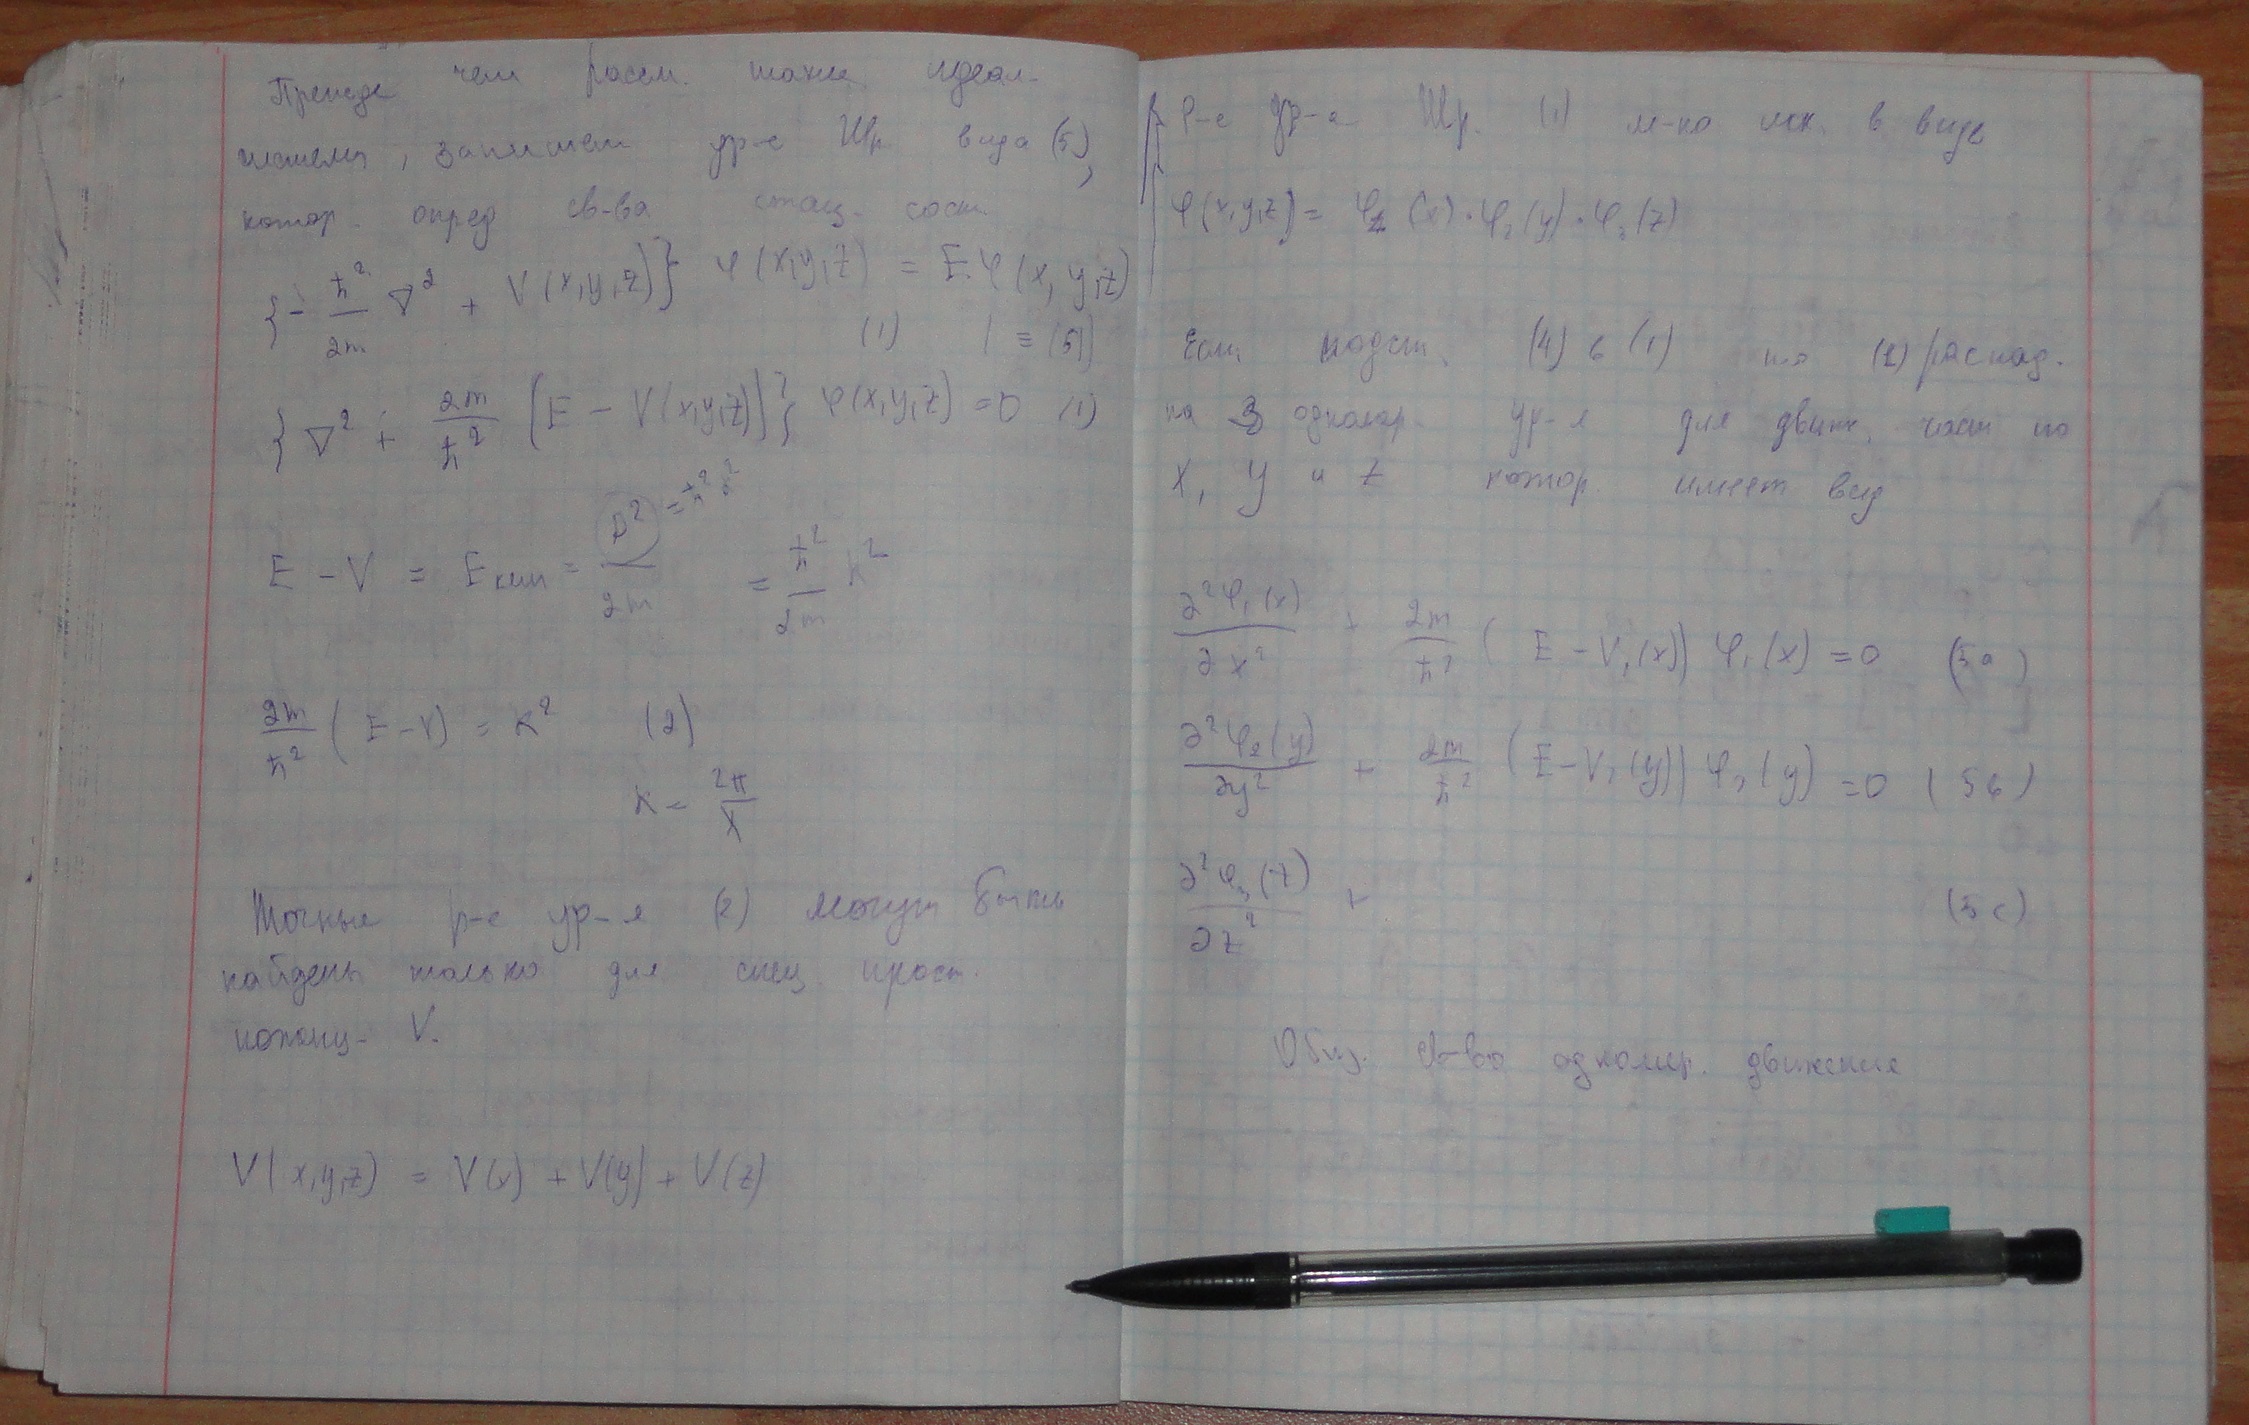 Прежде чем рассм. такие идеал.
системы, запишем ур-е Шр вида (5),
котор. опред св-ва стац. сост.
{- ħ²/2m ∇² + V(x,y,z)} φ(x,y,z) = E·φ(x,y,z)
(1) 1 ≡ (5)
{∇² + 2m/ħ² [E - V(x,y,z)]} φ(x,y,z) = 0 (1)
E - V = Eкин = p²/2m = ħ²/2m k²
2m/ħ² (E - V) = k² (2)
k = 2π/λ
Точные р-е ур-я (2) могут быть
найдены только для спец. прост.
потенц- V.
V(x,y,z) = V(x) + V(y) + V(z)
Р-е ур-я Шр. (1) м-но иск. в виде
φ(x,y,z) = φ₁(x)·φ₂(y)·φ₃(z)
Если подст. (4) в (1) то (1) распад.
на 3 одномер. ур-я для движ. част по
x, y и z котор. имеет вид
∂²φ₁(x)/∂x² + 2m/ħ² (E - V₁(x)) φ₁(x) = 0 (5a)
∂²φ₂(y)/∂y² + 2m/ħ² (E - V₂(y)) φ₂(y) = 0 (5б)
∂²φ₃(z)/∂z² + (5c)
Общ. св-во одномер. движения